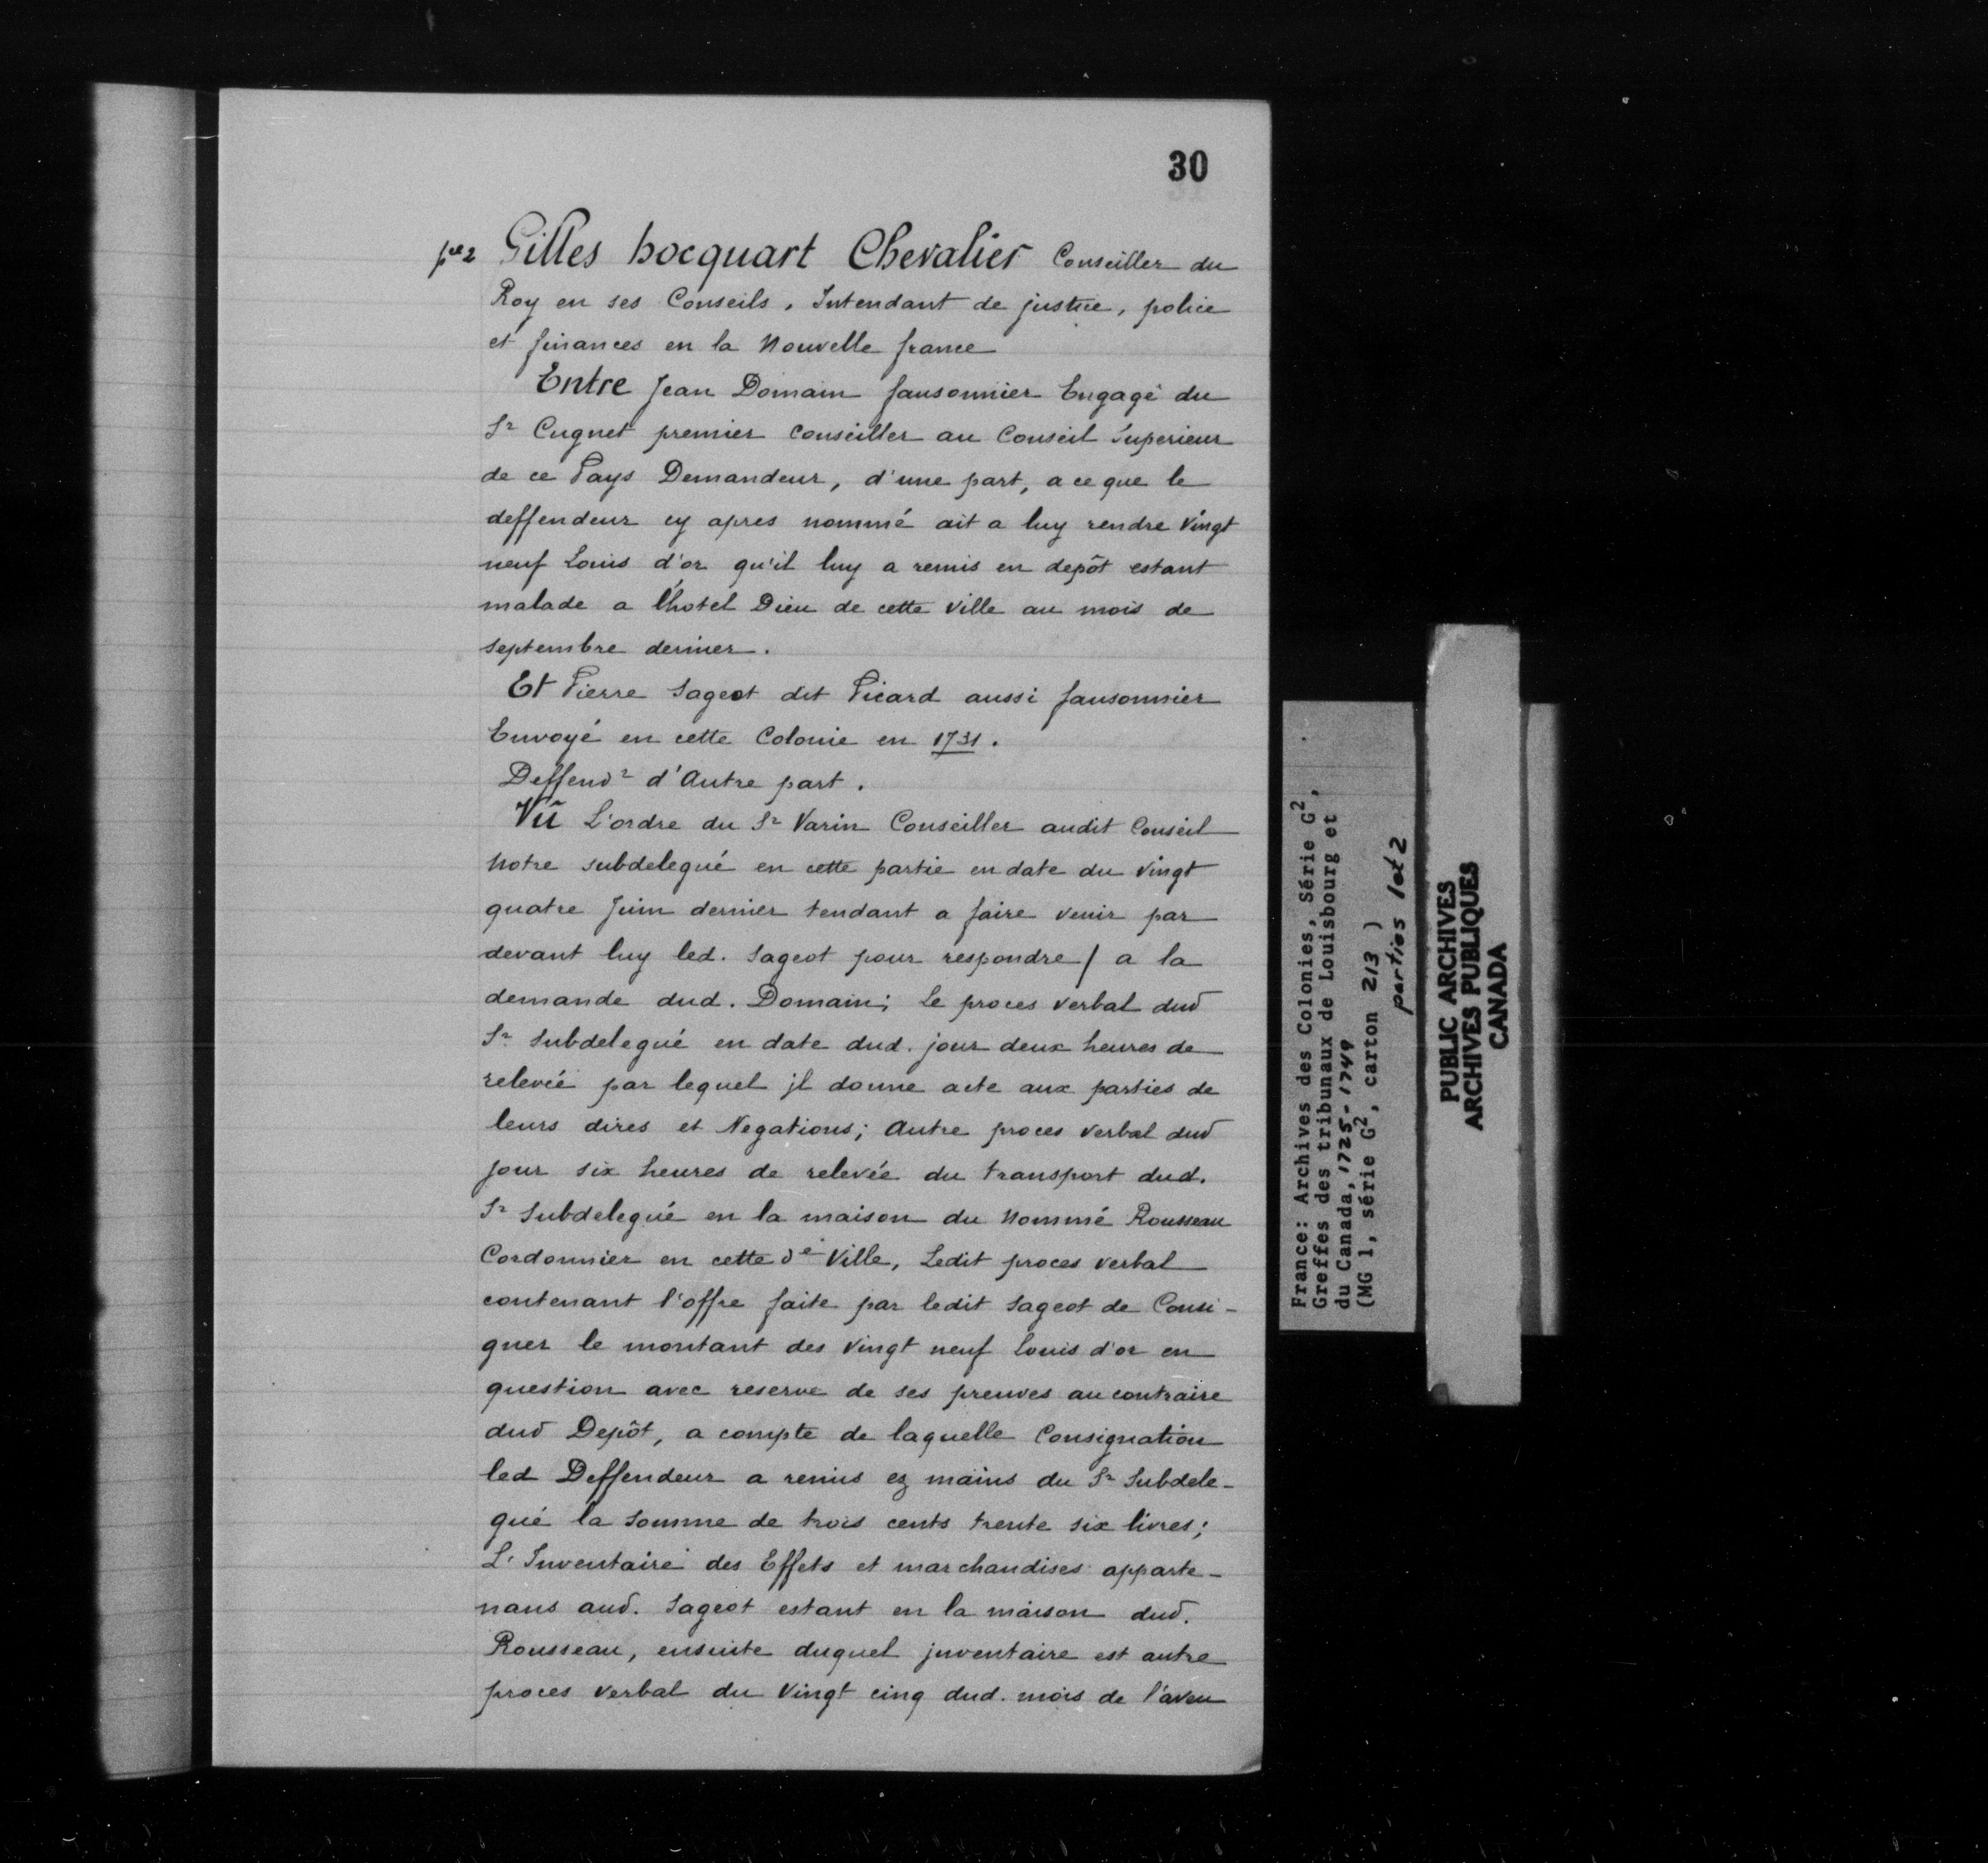 30
pce 2 Gilles hocquart Chevalier Conseiller du
Roy en ses Conseils, Intendant de justice, police
et finances en la Nouvelle france
Entre Jean Domain fausonnier Engagé du
Sr Cugnet premier conseiller au Conseil Superieur
de ce Pays Demandeur, d'une part, a ce que le
deffendeur cy apres nommé ait a luy rendre vingt
neuf Louis d'or qu'il luy a remis en depôt estant
malade a l'hotel Dieu de cette ville au mois de
septembre dernier.
Et Pierre Sageot dit Picard aussi fausonnier
Envoyé en cette Colonie en 1731.
Deffendr d'Autre part.
Vû L'ordre du Sr Varin Conseiller audit Conseil
Notre subdelegué en cette partie en date du vingt
quatre Juin dernier tendant a faire venir par
devant luy led. Sageot pour respondre / a la
demande dud. Domain; Le proces verbal dud
Sr Subdelegué en date dud. jour deux heures de
relevée par lequel jl donne acte aux parties de
leurs dires et Negations; Autre proces verbal dud
jour six heures de relevée du transport dud.
Sr Subdelegué en la maison du nommé Rousseau
Cordonnier en cette de Ville, Ledit proces verbal
contenant l'offre faite par ledit Sageot de Consi-
gner le montant des vingt neuf louis d'or en
question avec reserve de ses preuves au contraire
dud Depôt, a compte de laquelle Consignation
led Deffendeur a remis ez mains du Sr Subdele-
gué la somme de trois cents trente six livres;
L'Inventaire des Effets et marchandises apparte-
nans aud. Sageot estant en la maison dud.
Rousseau, ensuite duquel jnventaire est autre
proces verbal du vingt cinq dud. mois de l'aveu
France: Archives des Colonies, Série G2,
Greffes des tribunaux de Louisbourg et
du Canada, 1725-1749
(MG 1, série G2, carton 213 )
parties 1 et 2
PUBLIC ARCHIVES
ARCHIVES PUBLIQUES
CANADA